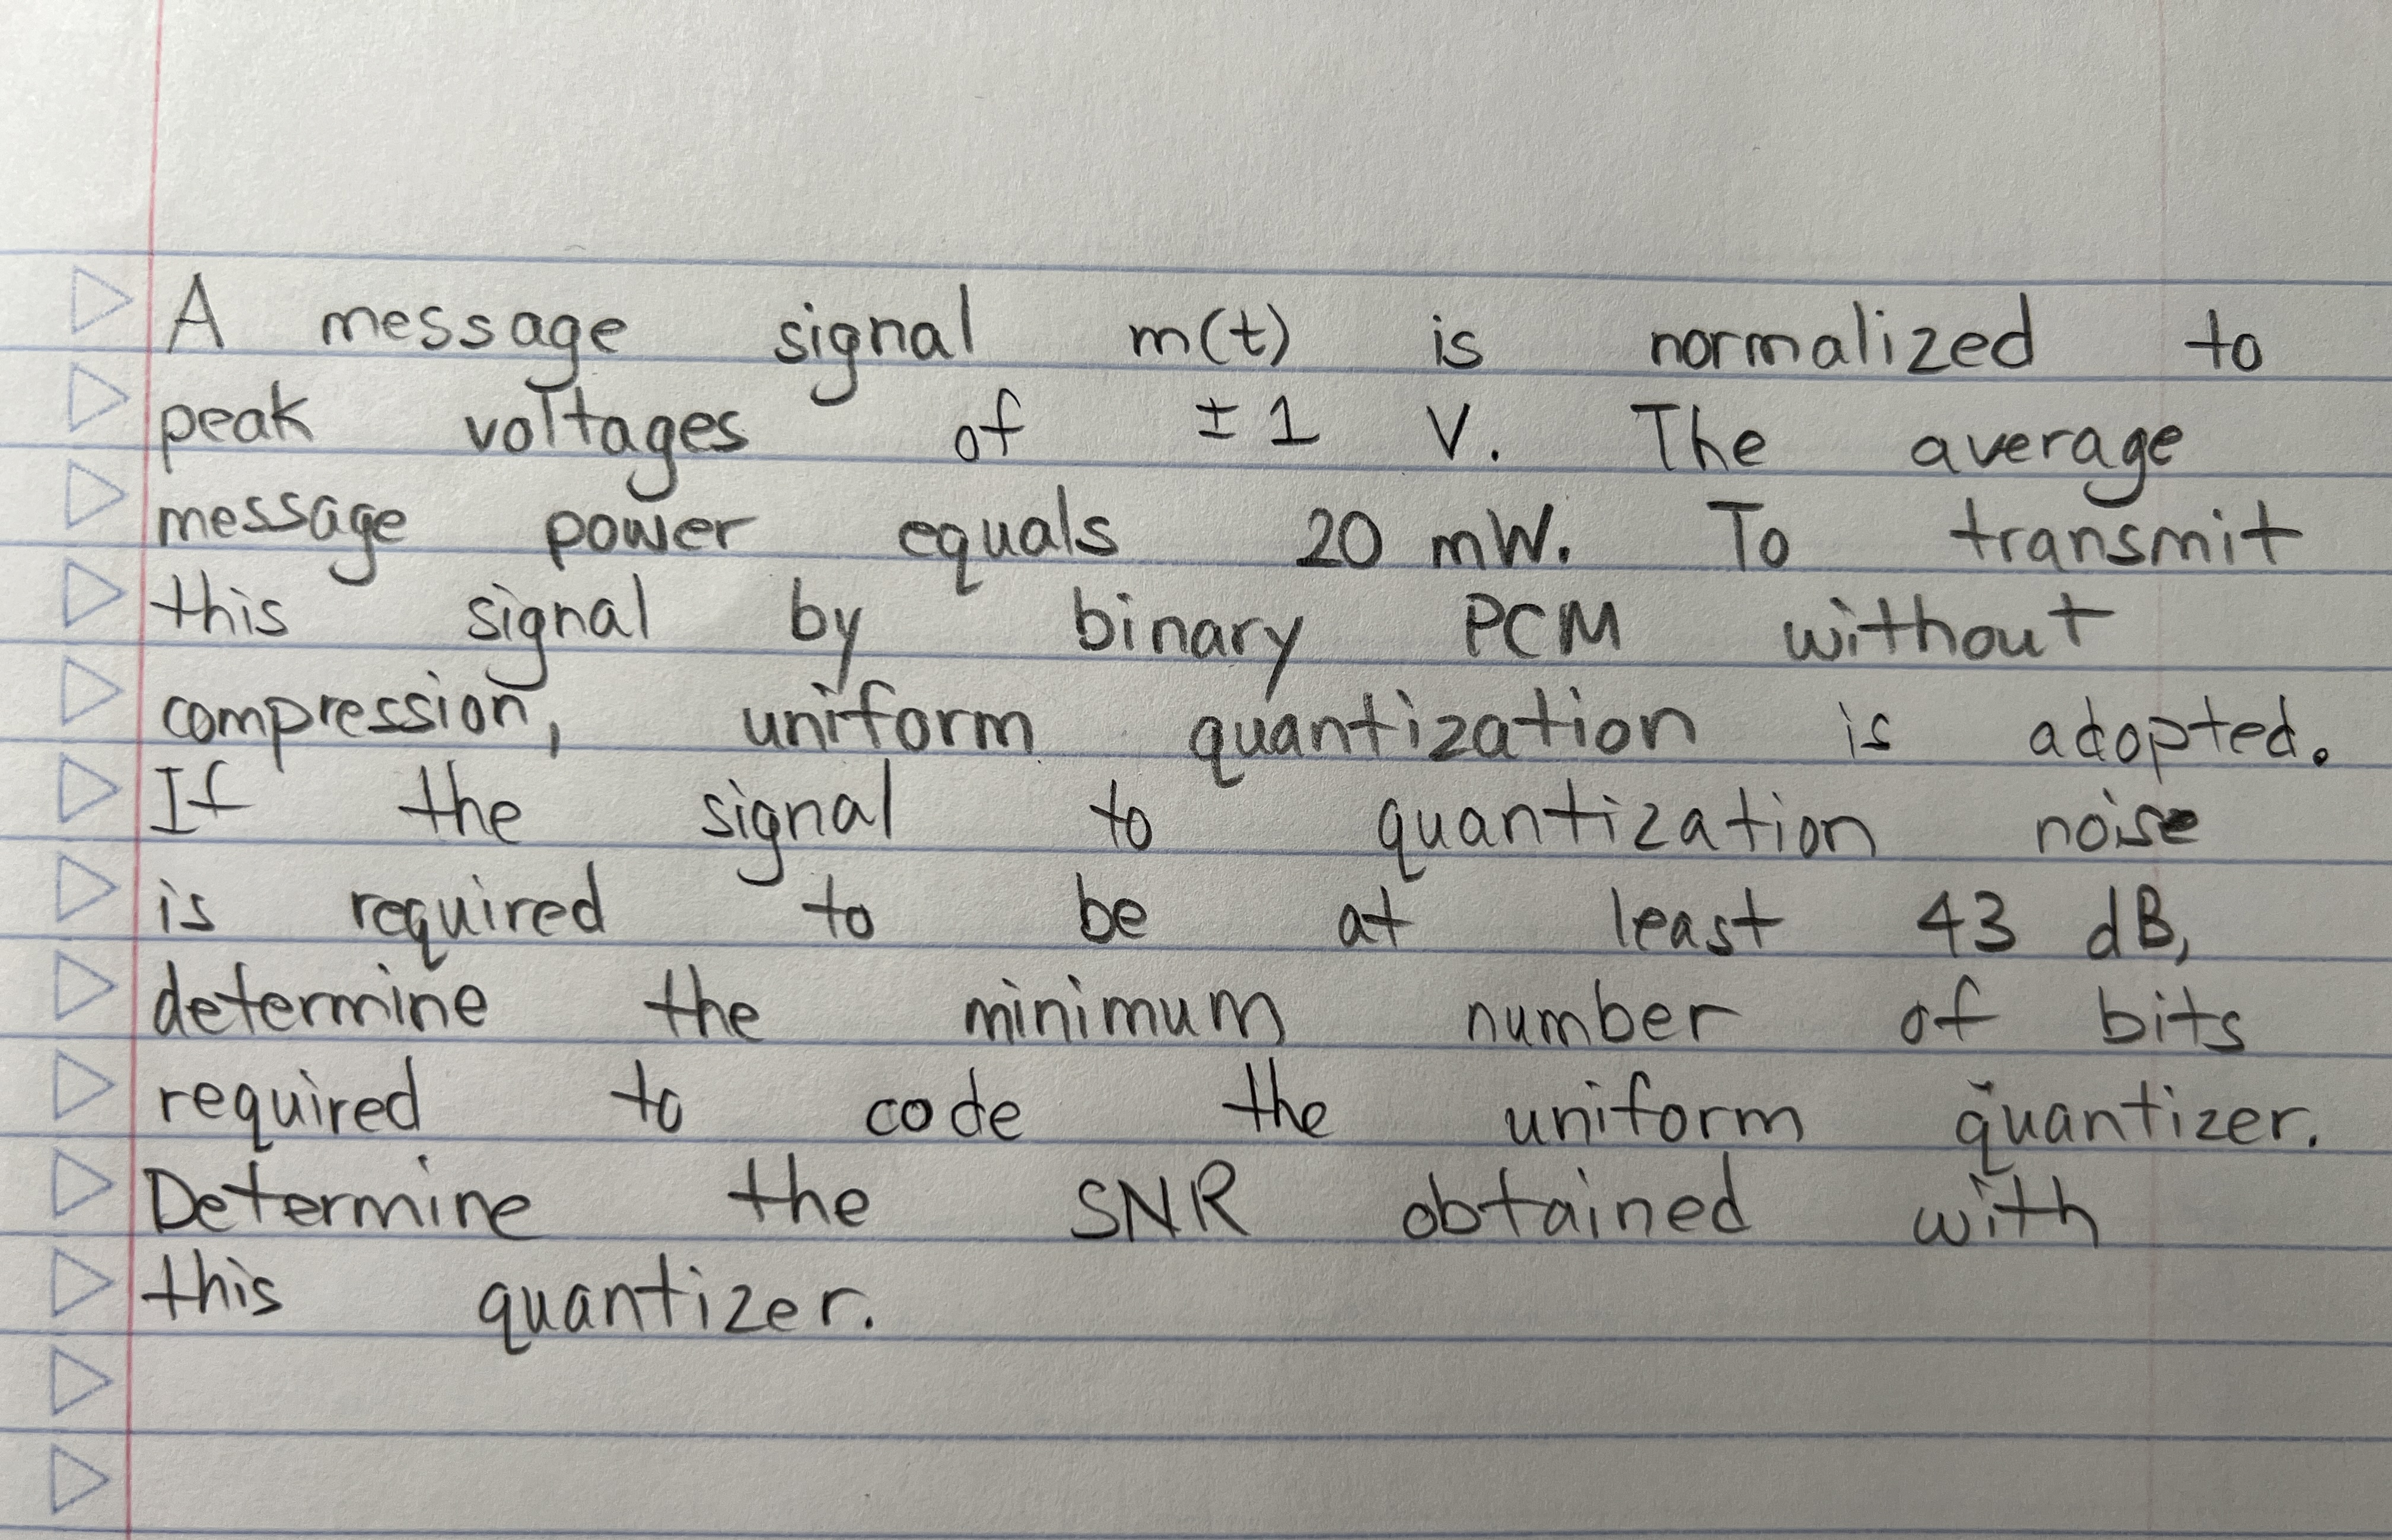 A message signal m(t) is normalized to
peak voltages of ±1 V. The average
message power equals 20 mW. To transmit
this signal by binary PCM without
compression, uniform quantization is adopted.
If the signal to quantization noise
is required to be at least 43 dB,
determine the minimum number of bits
required to code the uniform quantizer.
Determine the SNR obtained with
this quantizer.